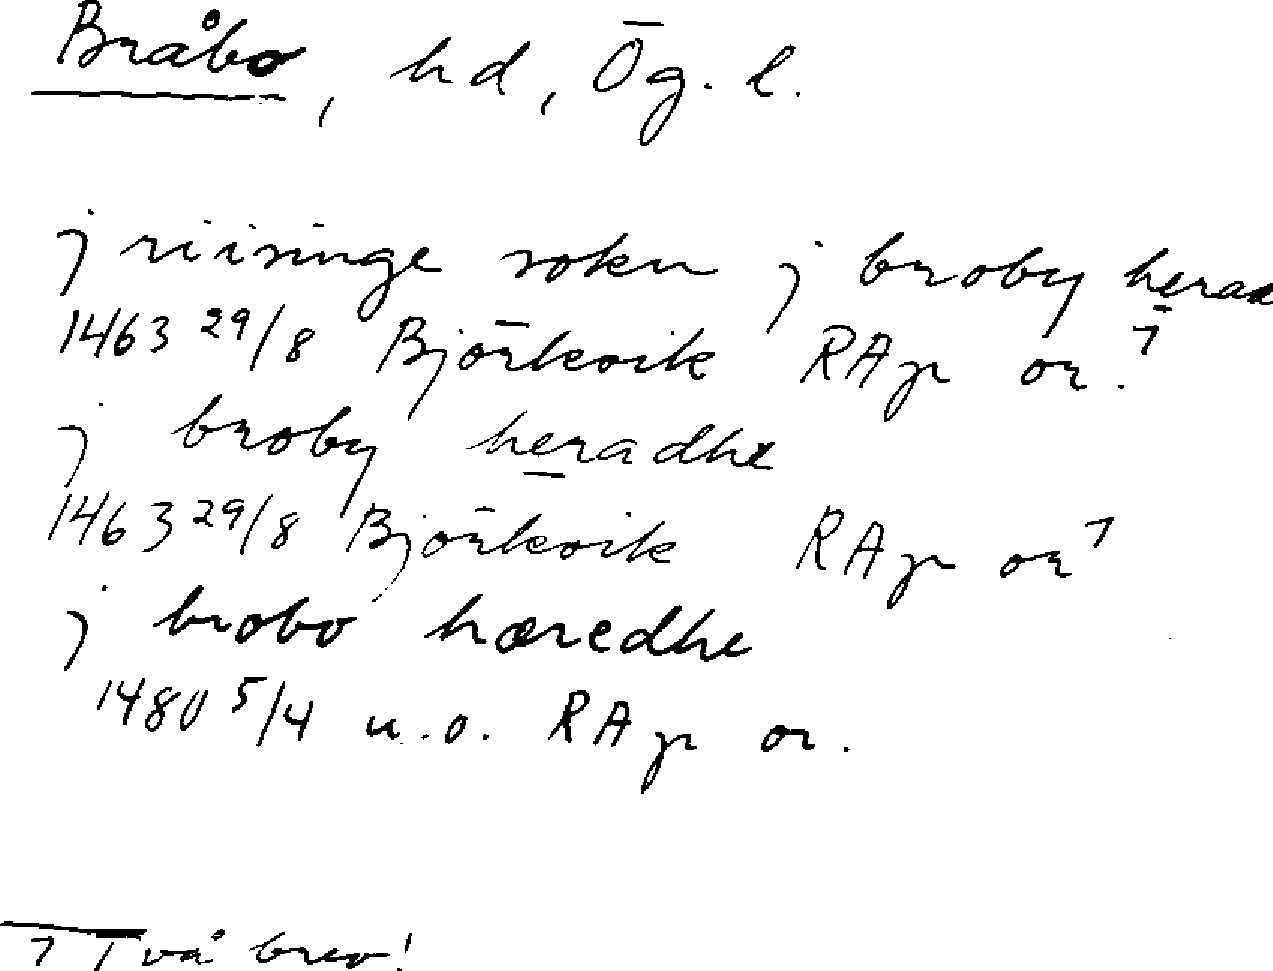 Bråbo, hd, Ög. l.
j riisinge sokn j broby herad
1463 29/8 Björkvik RAp or.1
j broby heradhe
1463 29/8 Björkvik RAp or1
j brobo hæredhe
1480 5/4 u.o. RAp or.
1 Två brev!